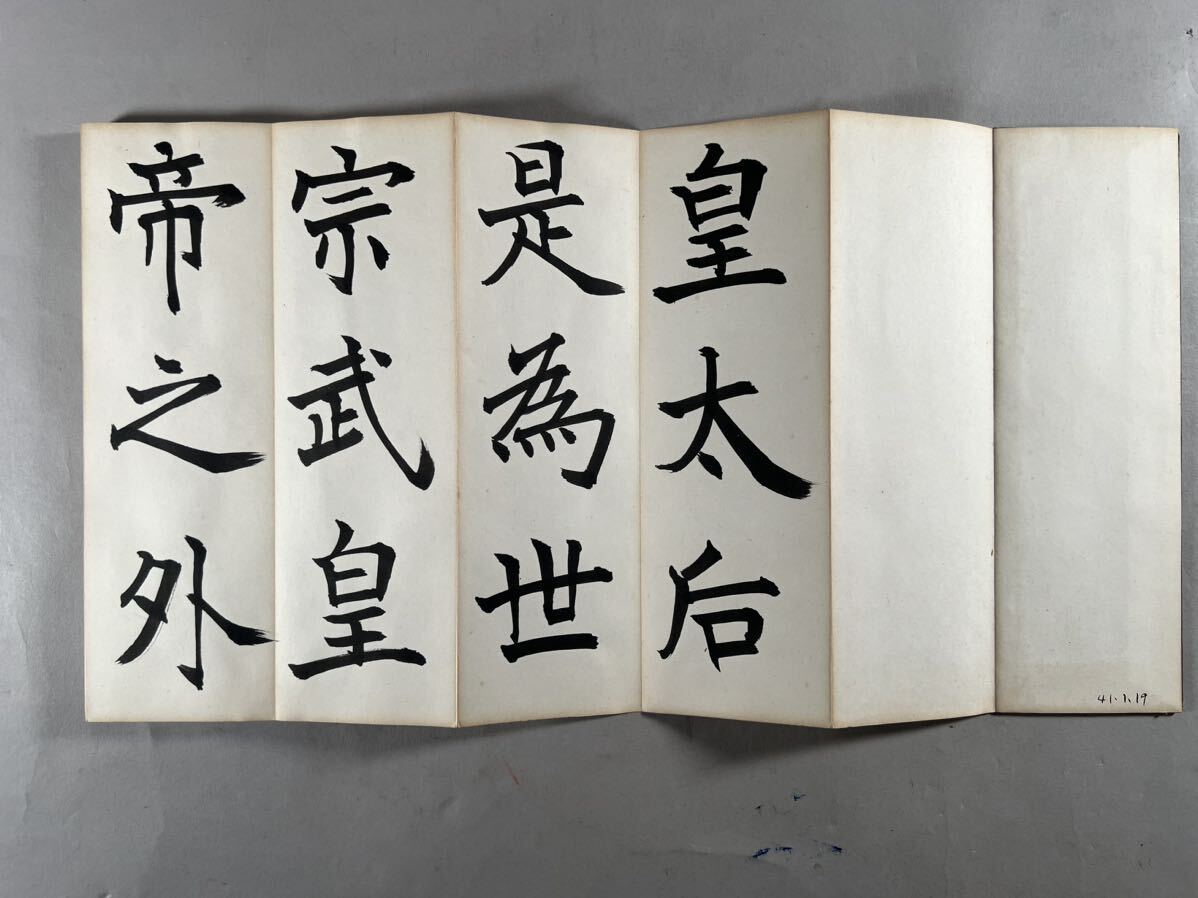 皇太后
是為世
宗武皇
帝之外
41.1.19